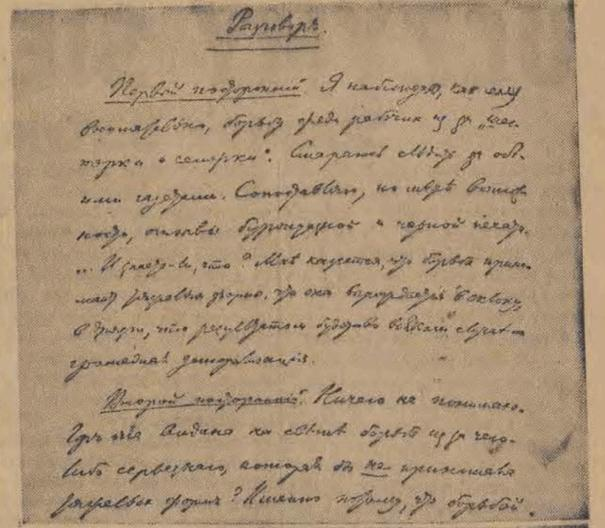 Разговоръ.
Первый посторонній. Я наблюдаю, как
борьбу среди рабочих из за „шес-
терки и семерки“. Стараюсь слѣдить за обѣ-
ими газетами. Сопоставляю, по мѣрѣ возмож-
ности, отклики буржуазной и черной печати
... И знаете-ли, что? Мнѣ кажется, что борьба прини-
мает формы, что она вырождается в склоку,
в дрязги, что результатом будет во всяком случаѣ
громадная деморализація.
Второй посторонній. Ничего не понимаю.
Гдѣ это видана на свѣтѣ борьба из за чего-
либо серьезнаго, которая бы не принимала
форм? Именно потому, что борьбой